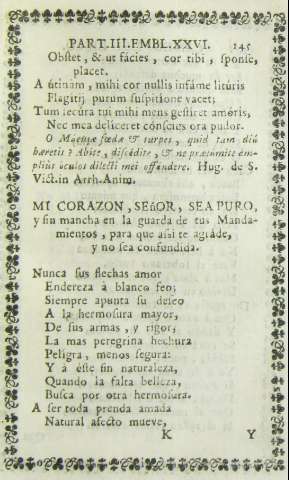 PART.III.EMBL.XXVI. 245
Obstet, & ut fácies, cor tibi, sponse,
placet.
A útinàm, mihi cor nullis infáme litúris
Flagitij purum suspitione vacet;
Tum secúra tui mihi mens gestiret amóris,
Nec mea deliceret cónscius ora pudor.
O Macuæ fœdæ & turpes, quid tam diú
hæretis? Abite, discédite, & ne præsumite am-
pliùs óculos dilecti mei offéndere. Hug. de S.
Vict. in Arrh. Anim.
MI CORAZON, SEñOR, SEA PURO,
y sin mancha en la guarda de tus Manda-
mientos, para que assi te agráde,
y no sea confundida.
Nunca sus flechas amor
Endereza à blanco feo;
Siempre apunta su deseo
A la hermosura mayor,
De sus armas, y rigor;
La mas peregrina hechura
Peligra, menos segura:
Y á éste sin naturaleza,
Quando la falta belleza,
Busca por otra hermosura.
A ser toda prenda amada
Natural afecto mueve,
K Y